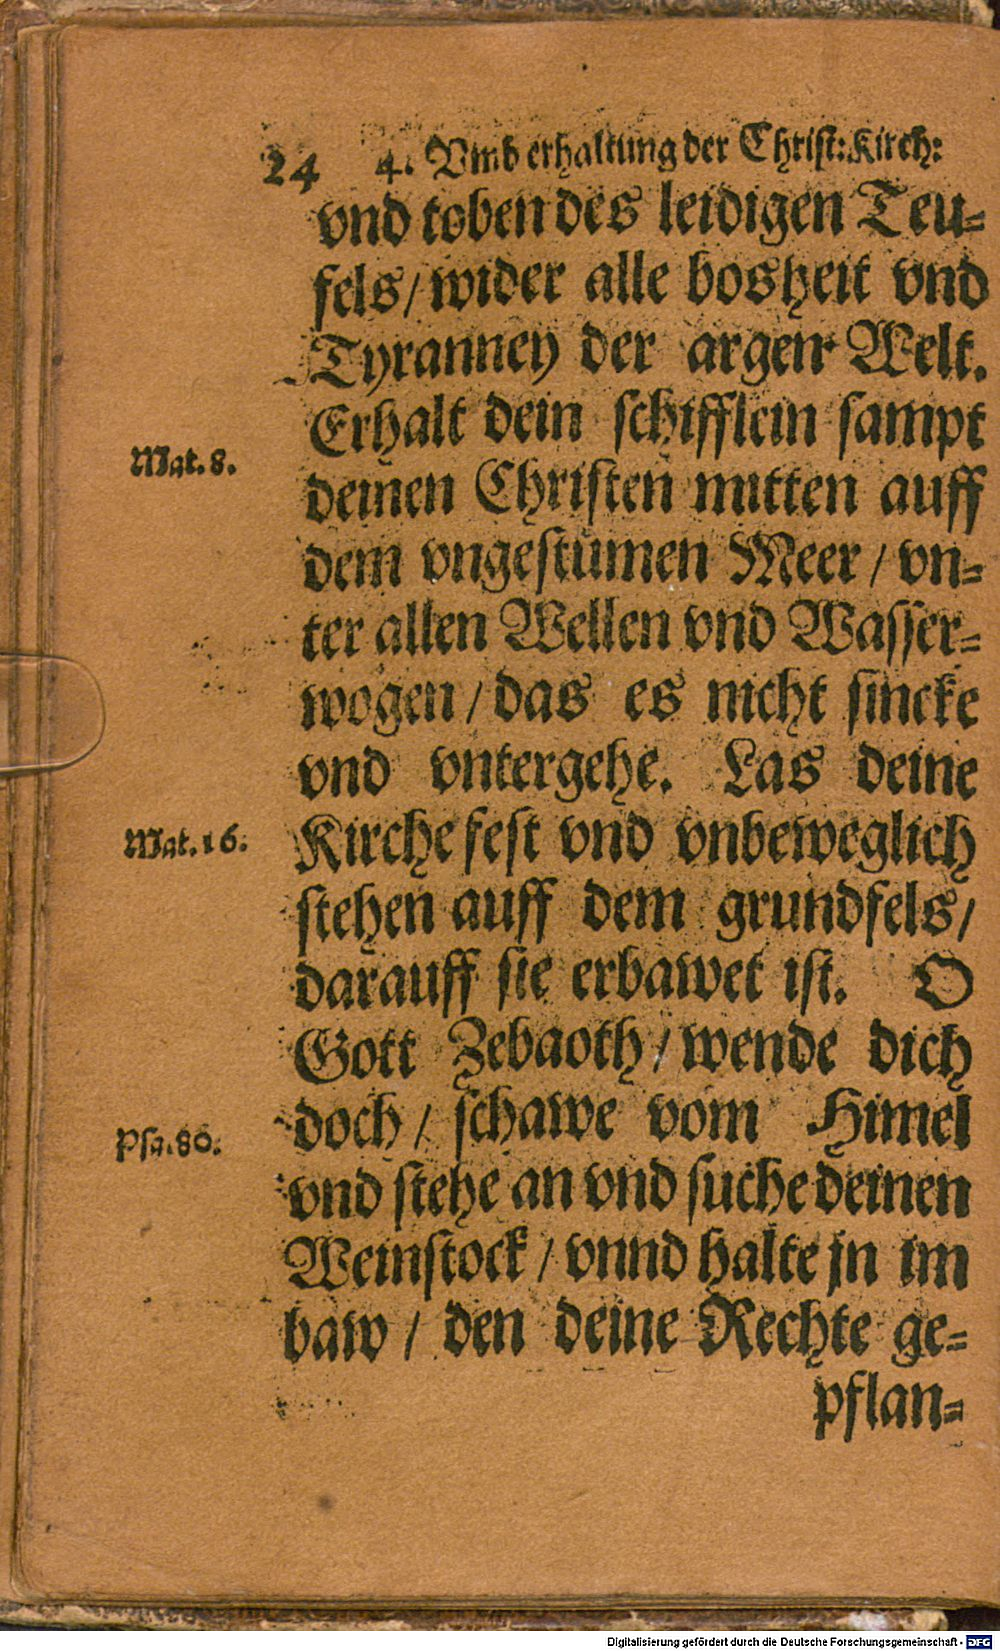 24 4. Vmb erhaltung der Christ: Kirch:
vnd toben des leidigen Teu-
fels/ wider alle bosheit vnd
Tyranney der argen Welt.
Erhalt dein schifflein sampt
Mat. 8.
deinen Christen mitten auff
dem vngestümen Meer / vn-
ter allen Wellen vnd Wasser-
wogen / das es nicht sincke
vnd vntergehe. Las deine
Mat. 16.
Kirche fest vnd vnbeweglich
stehen auff dem grundfels/
darauff sie erbawet ist. O
Gott Zebaoth / wende dich
doch / schawe vom Himel
Psa. 80.
vnd stehe an vnd suche deinen
Weinstock / vnnd halte jn im
baw / den deine Rechte ge-
pflan-
Digitalisierung gefördert durch die Deutsche Forschungsgemeinschaft - DFG